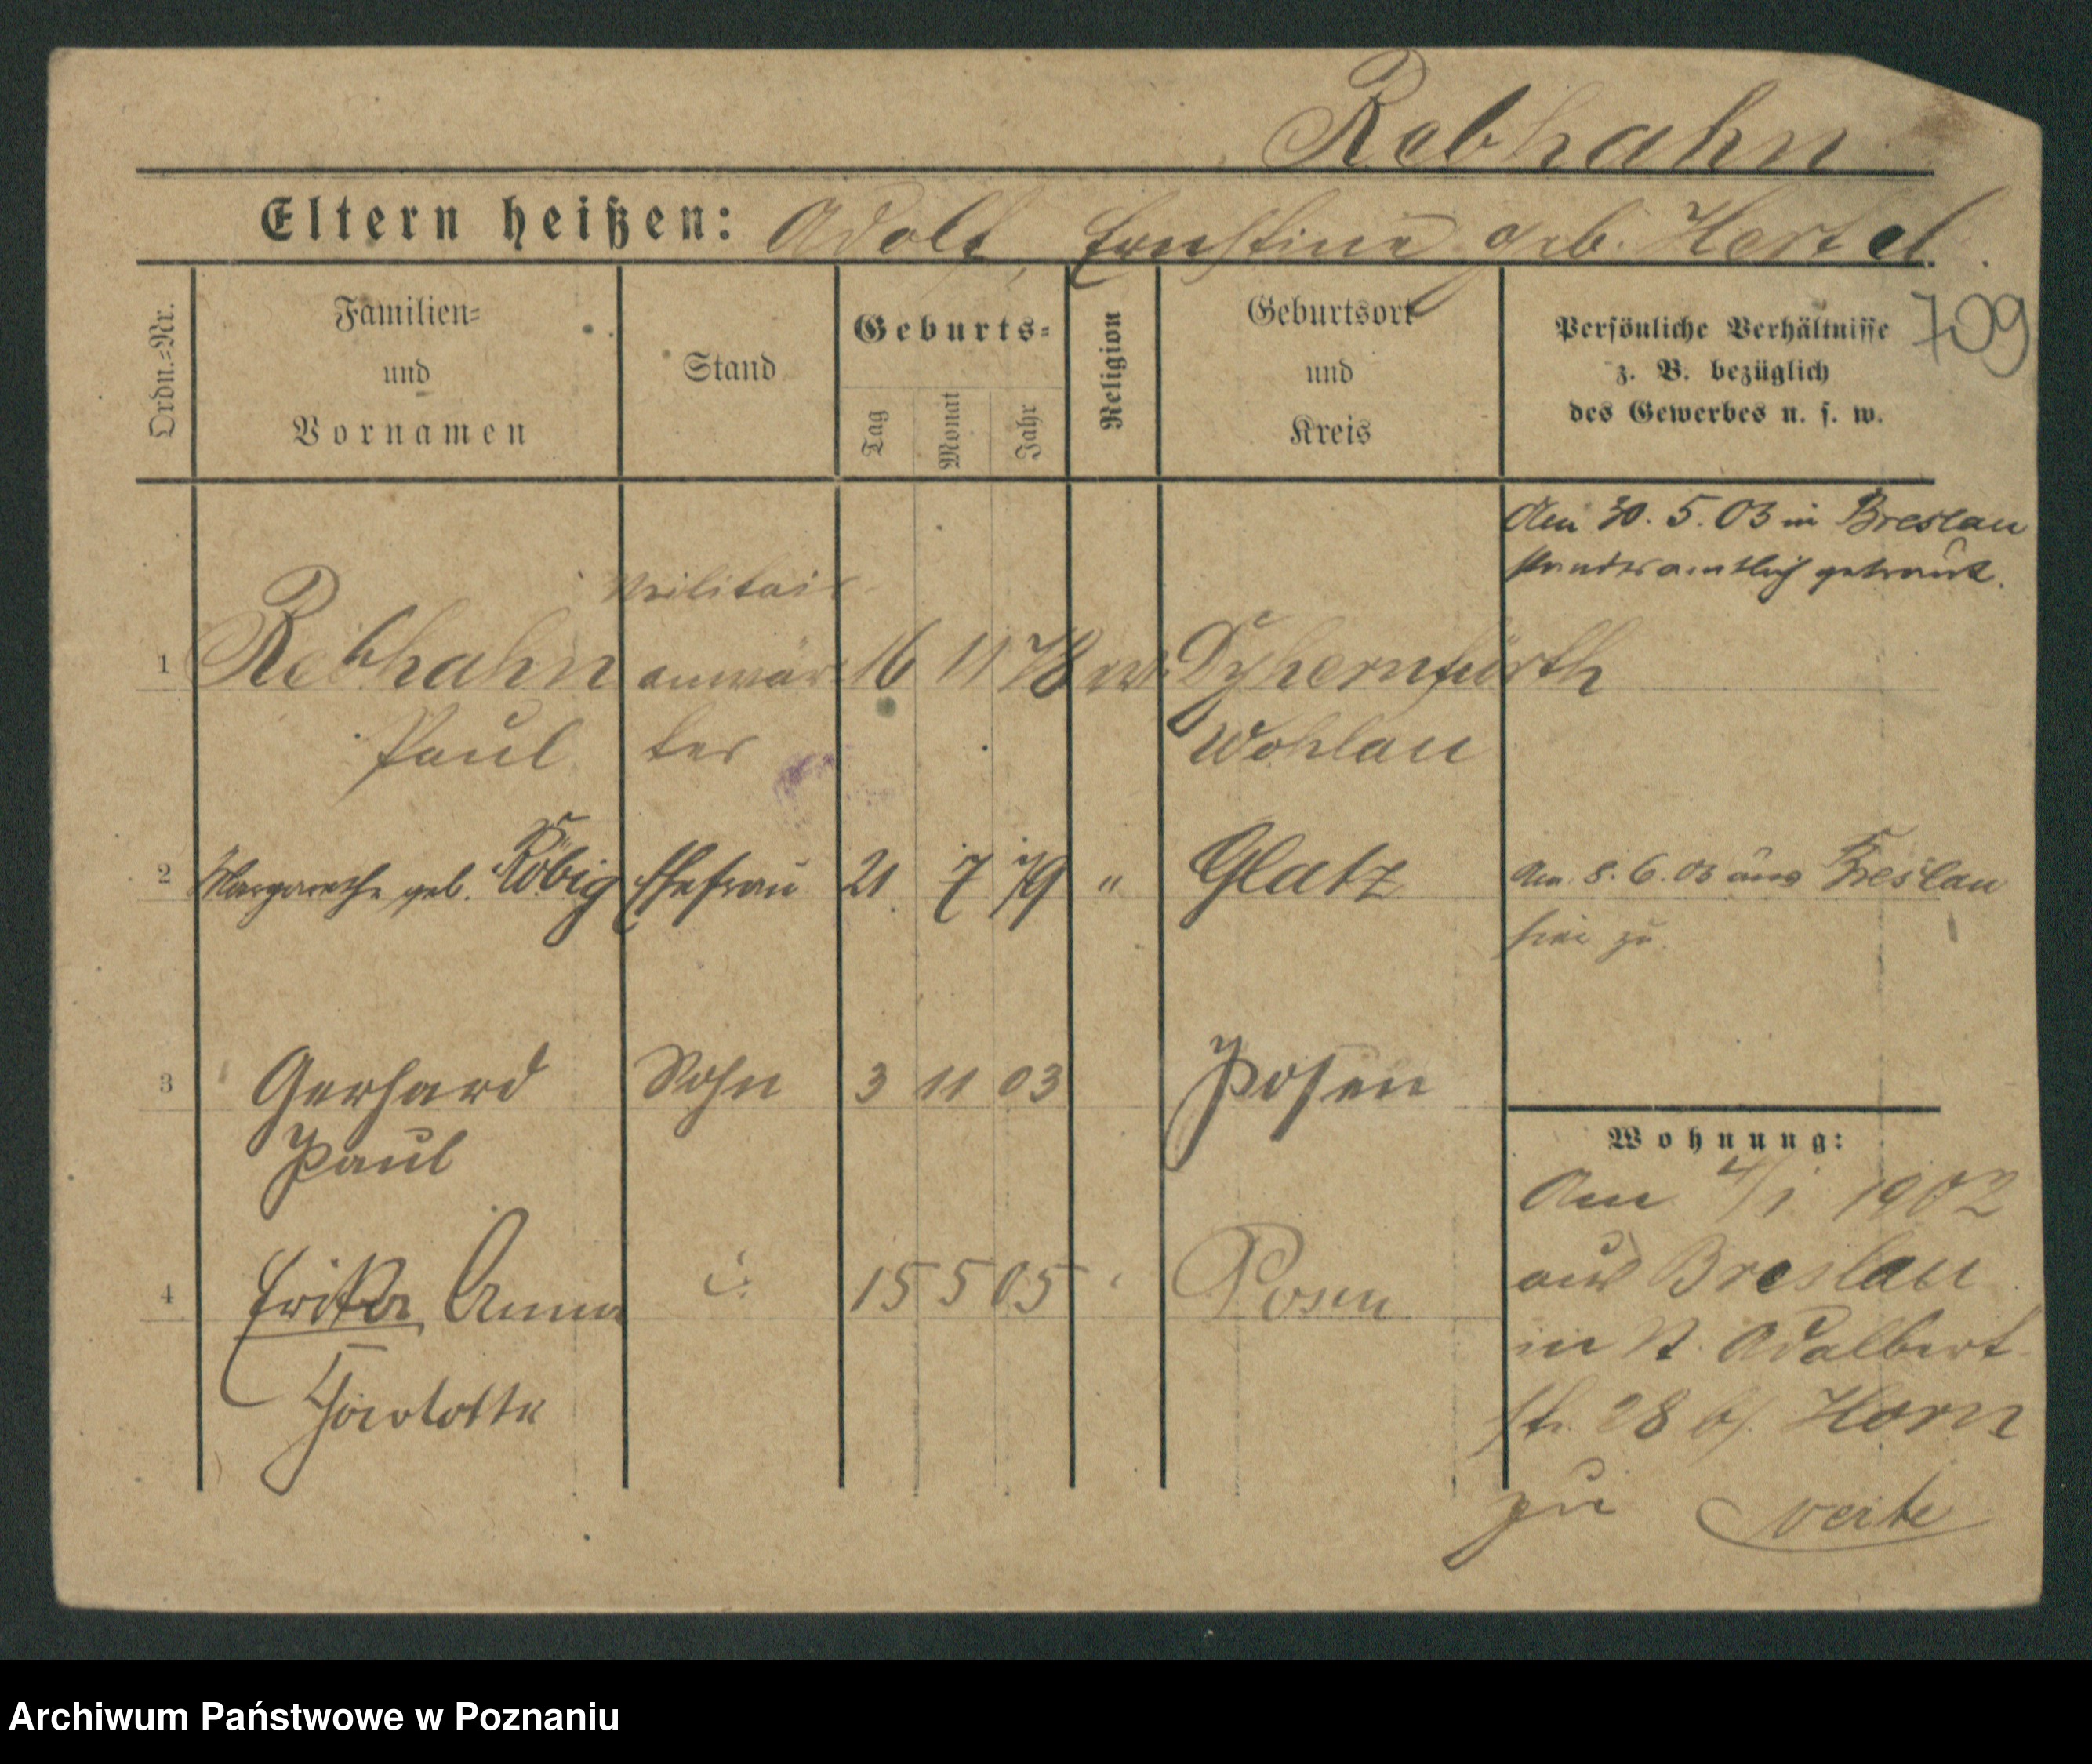 Rebhahn
Eltern heißen: Adolf, Ernstine geb. Hertel.
709
Ordn.-Nr.
Familien-
und
Vornamen
Stand
Geburts-
Tag
Monat
Jahr
Religion
Geburtsort
und
Kreis
Persönliche Verhältnisse
z. B. bezüglich
des Gewerbes u. s. w.
Am 30. 5. 03 in Breslau
standesamtlich getraut.
Militair
1 Rebhahn anwär 16 11 78 ev. Dyhernfurth
Paul ter Wohlau
2 Margarethe geb. Röbig Ehefrau 21 7 79 " Glatz
Am 8. 6. 03 aus Breslau
hier zu.
3 Gerhard Sohn 3 11 03 Posen
Paul
4 Erika Anna 15 5 05 Posen
Charlotte
Wohnung:
Am 4/1 1902
aus Breslau
in St. Adalbert
str. 28 b/ Horn
zu
Archiwum Państwowe w Poznaniu